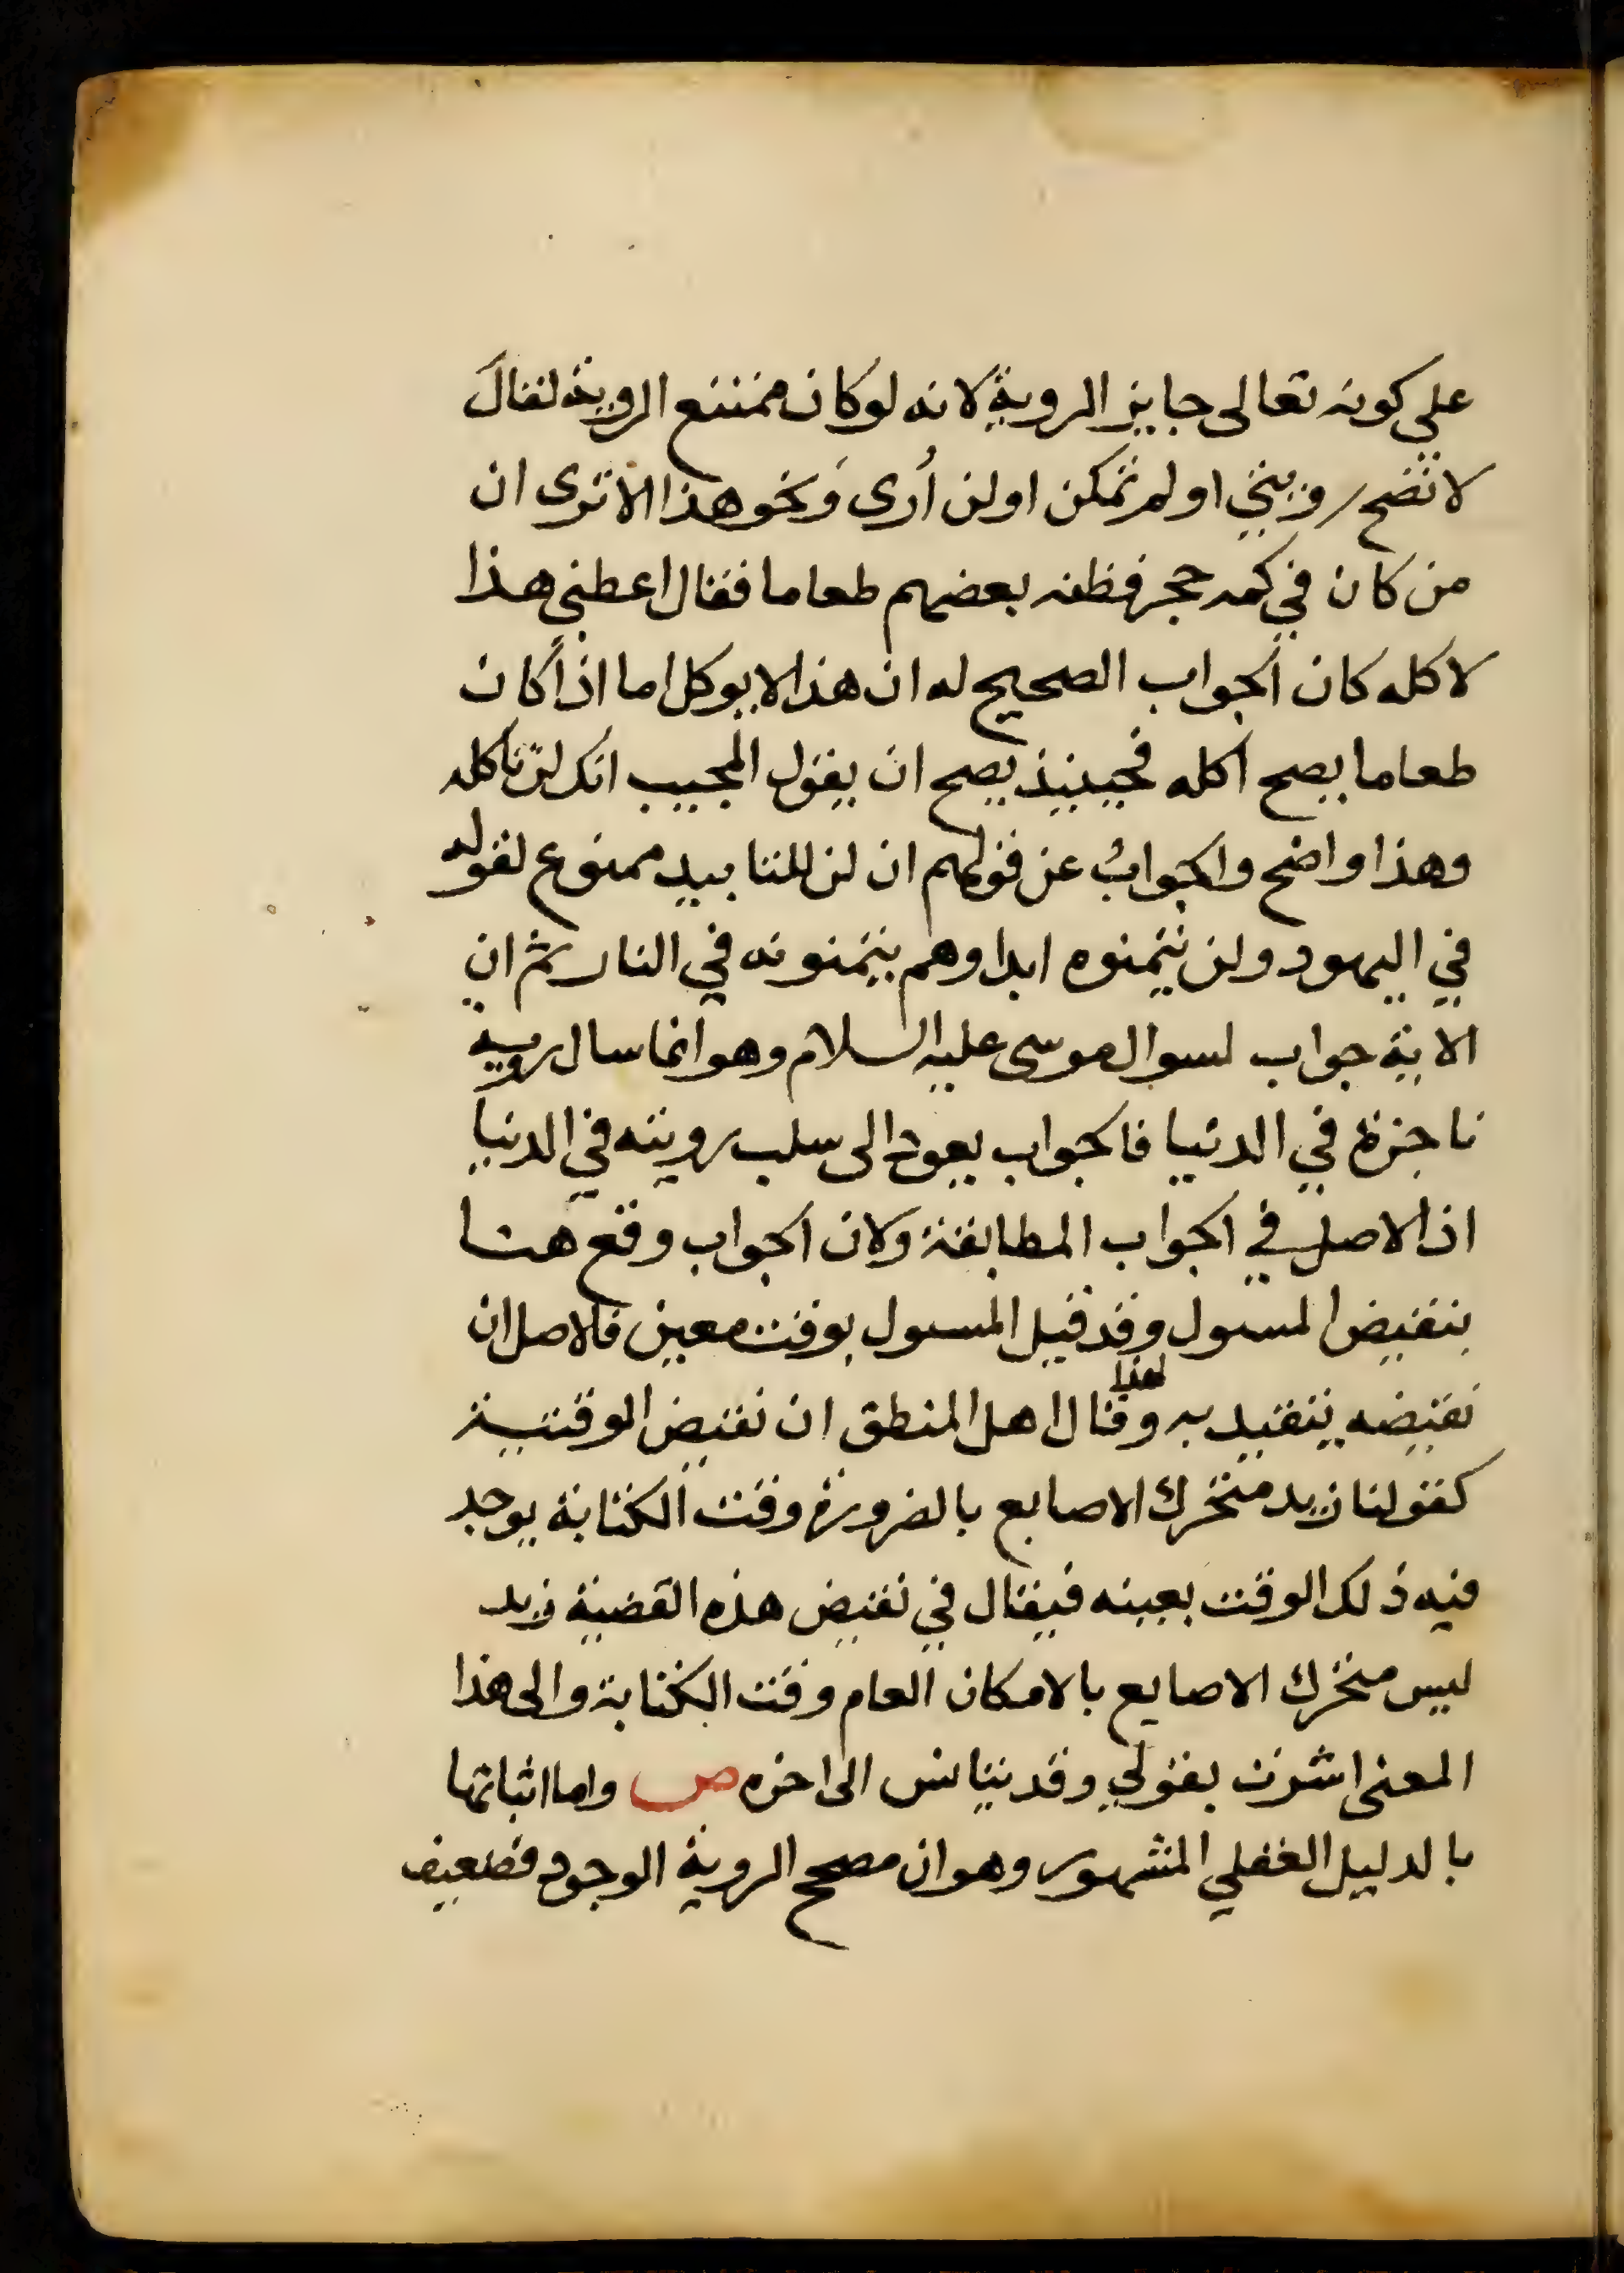 علي كونه تعالى جايز الروية لانه لوكان ممتنع الروية لقال
لا تصح رويتي او لم تمكن او لن أرى ونحو هذا الا ترى ان
من كان في كمه حجر فظنه بعضهم طعاما فقال اعطني هذا
لاكله كان الجواب الصحيح له ان هذا لا يوكل اما اذا كان
طعاما يصح اكله فحينيذ يصح ان يقول المجيب انك لن تاكله
وهذا واضح والجواب عن قولهم ان لن للتابيد ممنوع لقوله
في اليهود ولن يتمنوه ابدا وهم يتمنونه في النار ثم ان
الاية جواب لسوال موسى عليه السلام وهو انما سال روية
ناجزة في الدنيا فالجواب يعود الى سلب رويته في الدنيا
اذ الاصل في الجواب المطابقة ولان الجواب وقع هنا
بنقيض المسول وقد قيد المسول بوقت معين فالاصل ان
نقيضه يتقيد به ولهذا قال اهل المنطق ان نقيض الوقتية
كقولنا زيد متحرك الاصابع بالضرورة وقت الكتابة يوجد
فيه ذلك الوقت بعينه فيقال في نقيض هذه القضية زيد
ليس متحرك الاصابع بالامكان العام وقت الكتابة والى هذا
المعنى اشرت بقولي وقد يتانس الى اخره ص واما اثباتها
بالدليل العقلي المشهور وهو ان مصحح الروية الوجود فضعيف